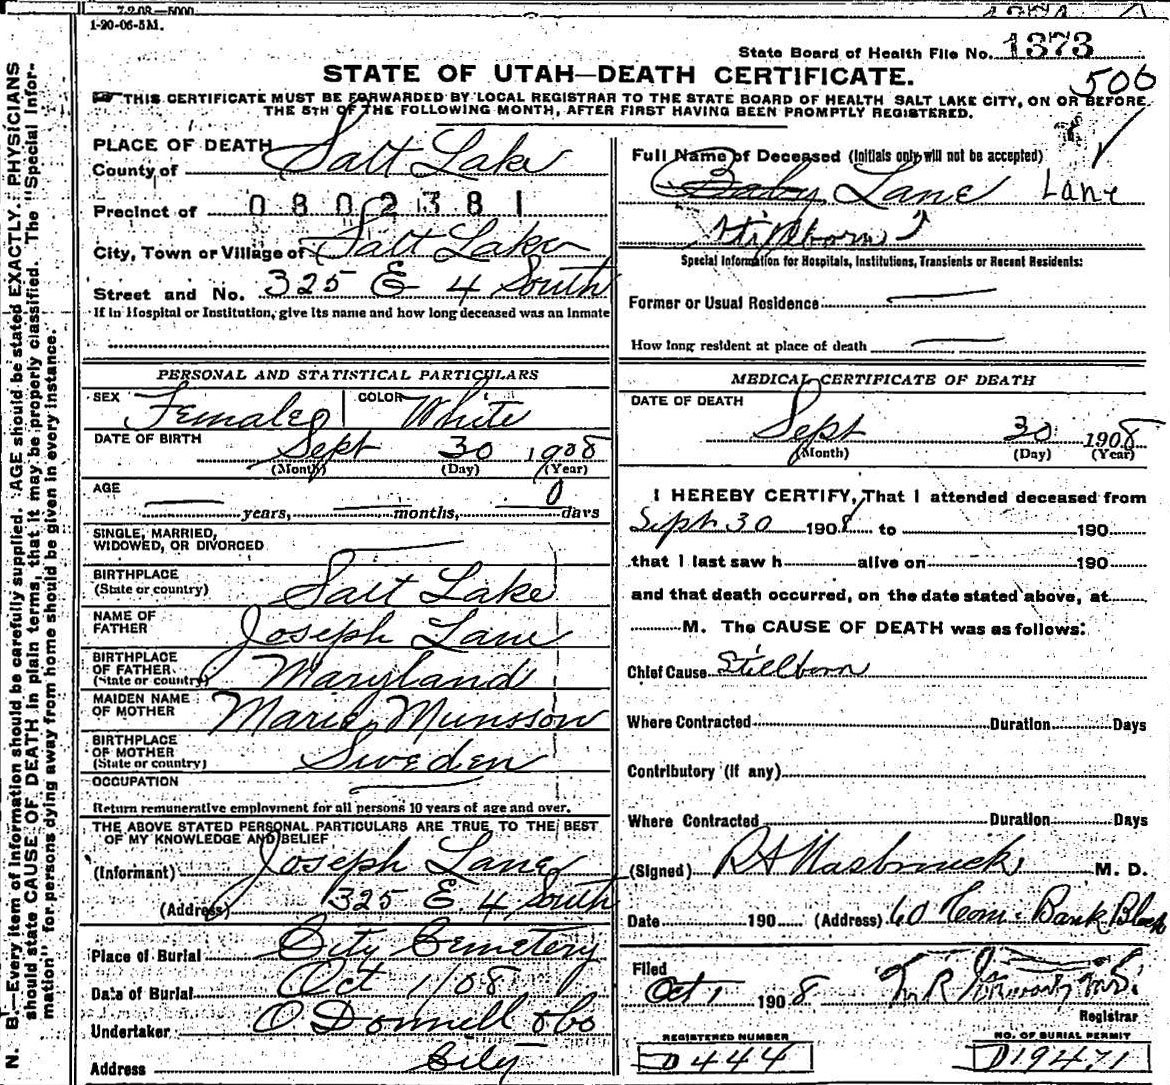 7-2-08—5000
1-20-06-5M.
State Board of Health File No. 1373
506
STATE OF UTAH—DEATH CERTIFICATE.
THIS CERTIFICATE MUST BE FORWARDED BY LOCAL REGISTRAR TO THE STATE BOARD OF HEALTH SALT LAKE CITY, ON OR BEFORE
THE 5TH OF THE FOLLOWING MONTH, AFTER FIRST HAVING BEEN PROMPTLY REGISTERED.
PLACE OF DEATH
County of Salt Lake
Precinct of 0802381
City, Town or Village of Salt Lake
Street and No. 325 E 4 South
If in Hospital or Institution, give its name and how long deceased was an inmate
PERSONAL AND STATISTICAL PARTICULARS
SEX Female COLOR White
DATE OF BIRTH
Sept 30 1908
(Month) (Day) (Year)
AGE
years, months, 0 days
SINGLE, MARRIED,
WIDOWED, OR DIVORCED
BIRTHPLACE
(State or country) Salt Lake
NAME OF
FATHER Joseph Lane
BIRTHPLACE
OF FATHER
(State or country) Maryland
MAIDEN NAME
OF MOTHER Marie Munsson
BIRTHPLACE
OF MOTHER
(State or country) Sweden
OCCUPATION
Return remunerative employment for all persons 10 years of age and over.
THE ABOVE STATED PERSONAL PARTICULARS ARE TRUE TO THE BEST
OF MY KNOWLEDGE AND BELIEF
(Informant) Joseph Lane
(Address) 325 E 4 South
Place of Burial City Cemetery
Date of Burial Oct 1/08
Undertaker O Donnell & Co
Address City
Full Name of Deceased (Initials only will not be accepted)
Baby Lane Lane
Stillborn
Special Information for Hospitals, Institutions, Transients or Recent Residents:
Former or Usual Residence
How long resident at place of death
MEDICAL CERTIFICATE OF DEATH
DATE OF DEATH
Sept 30 1908
(Month) (Day) (Year)
I HEREBY CERTIFY, That I attended deceased from
Sept 30 1908 to 190
that I last saw h alive on 190
and that death occurred, on the date stated above, at
M. The CAUSE OF DEATH was as follows:
Chief Cause Stillborn
Where Contracted Duration Days
Contributory (if any)
Where Contracted Duration Days
(Signed) M. D.
Date 190 (Address) 60 Com. Bank Block
Filed
Oct 1 1908
Registrar
REGISTERED NUMBER NO. OF BURIAL PERMIT
D444 D19471
N. B.—Every item of information should be carefully supplied. AGE should be stated EXACTLY. PHYSICIANS
should state CAUSE OF DEATH in plain terms, that it may be properly classified. The "Special Infor-
mation" for persons dying away from home should be given in every instance.